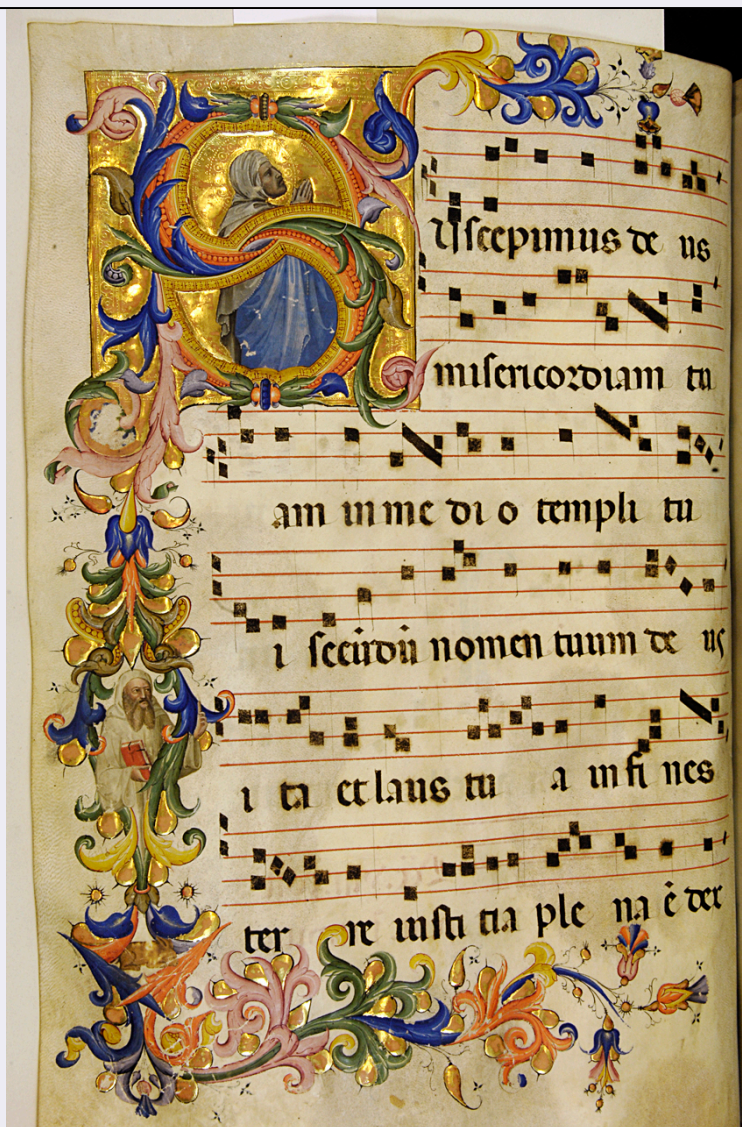 Suscepimus de us
misericordiam tu
am in me di o templi tu
i secūdū nomen tuum de us
i ta et laus tu a in fi nes
ter re iusti tia ple na ē dex